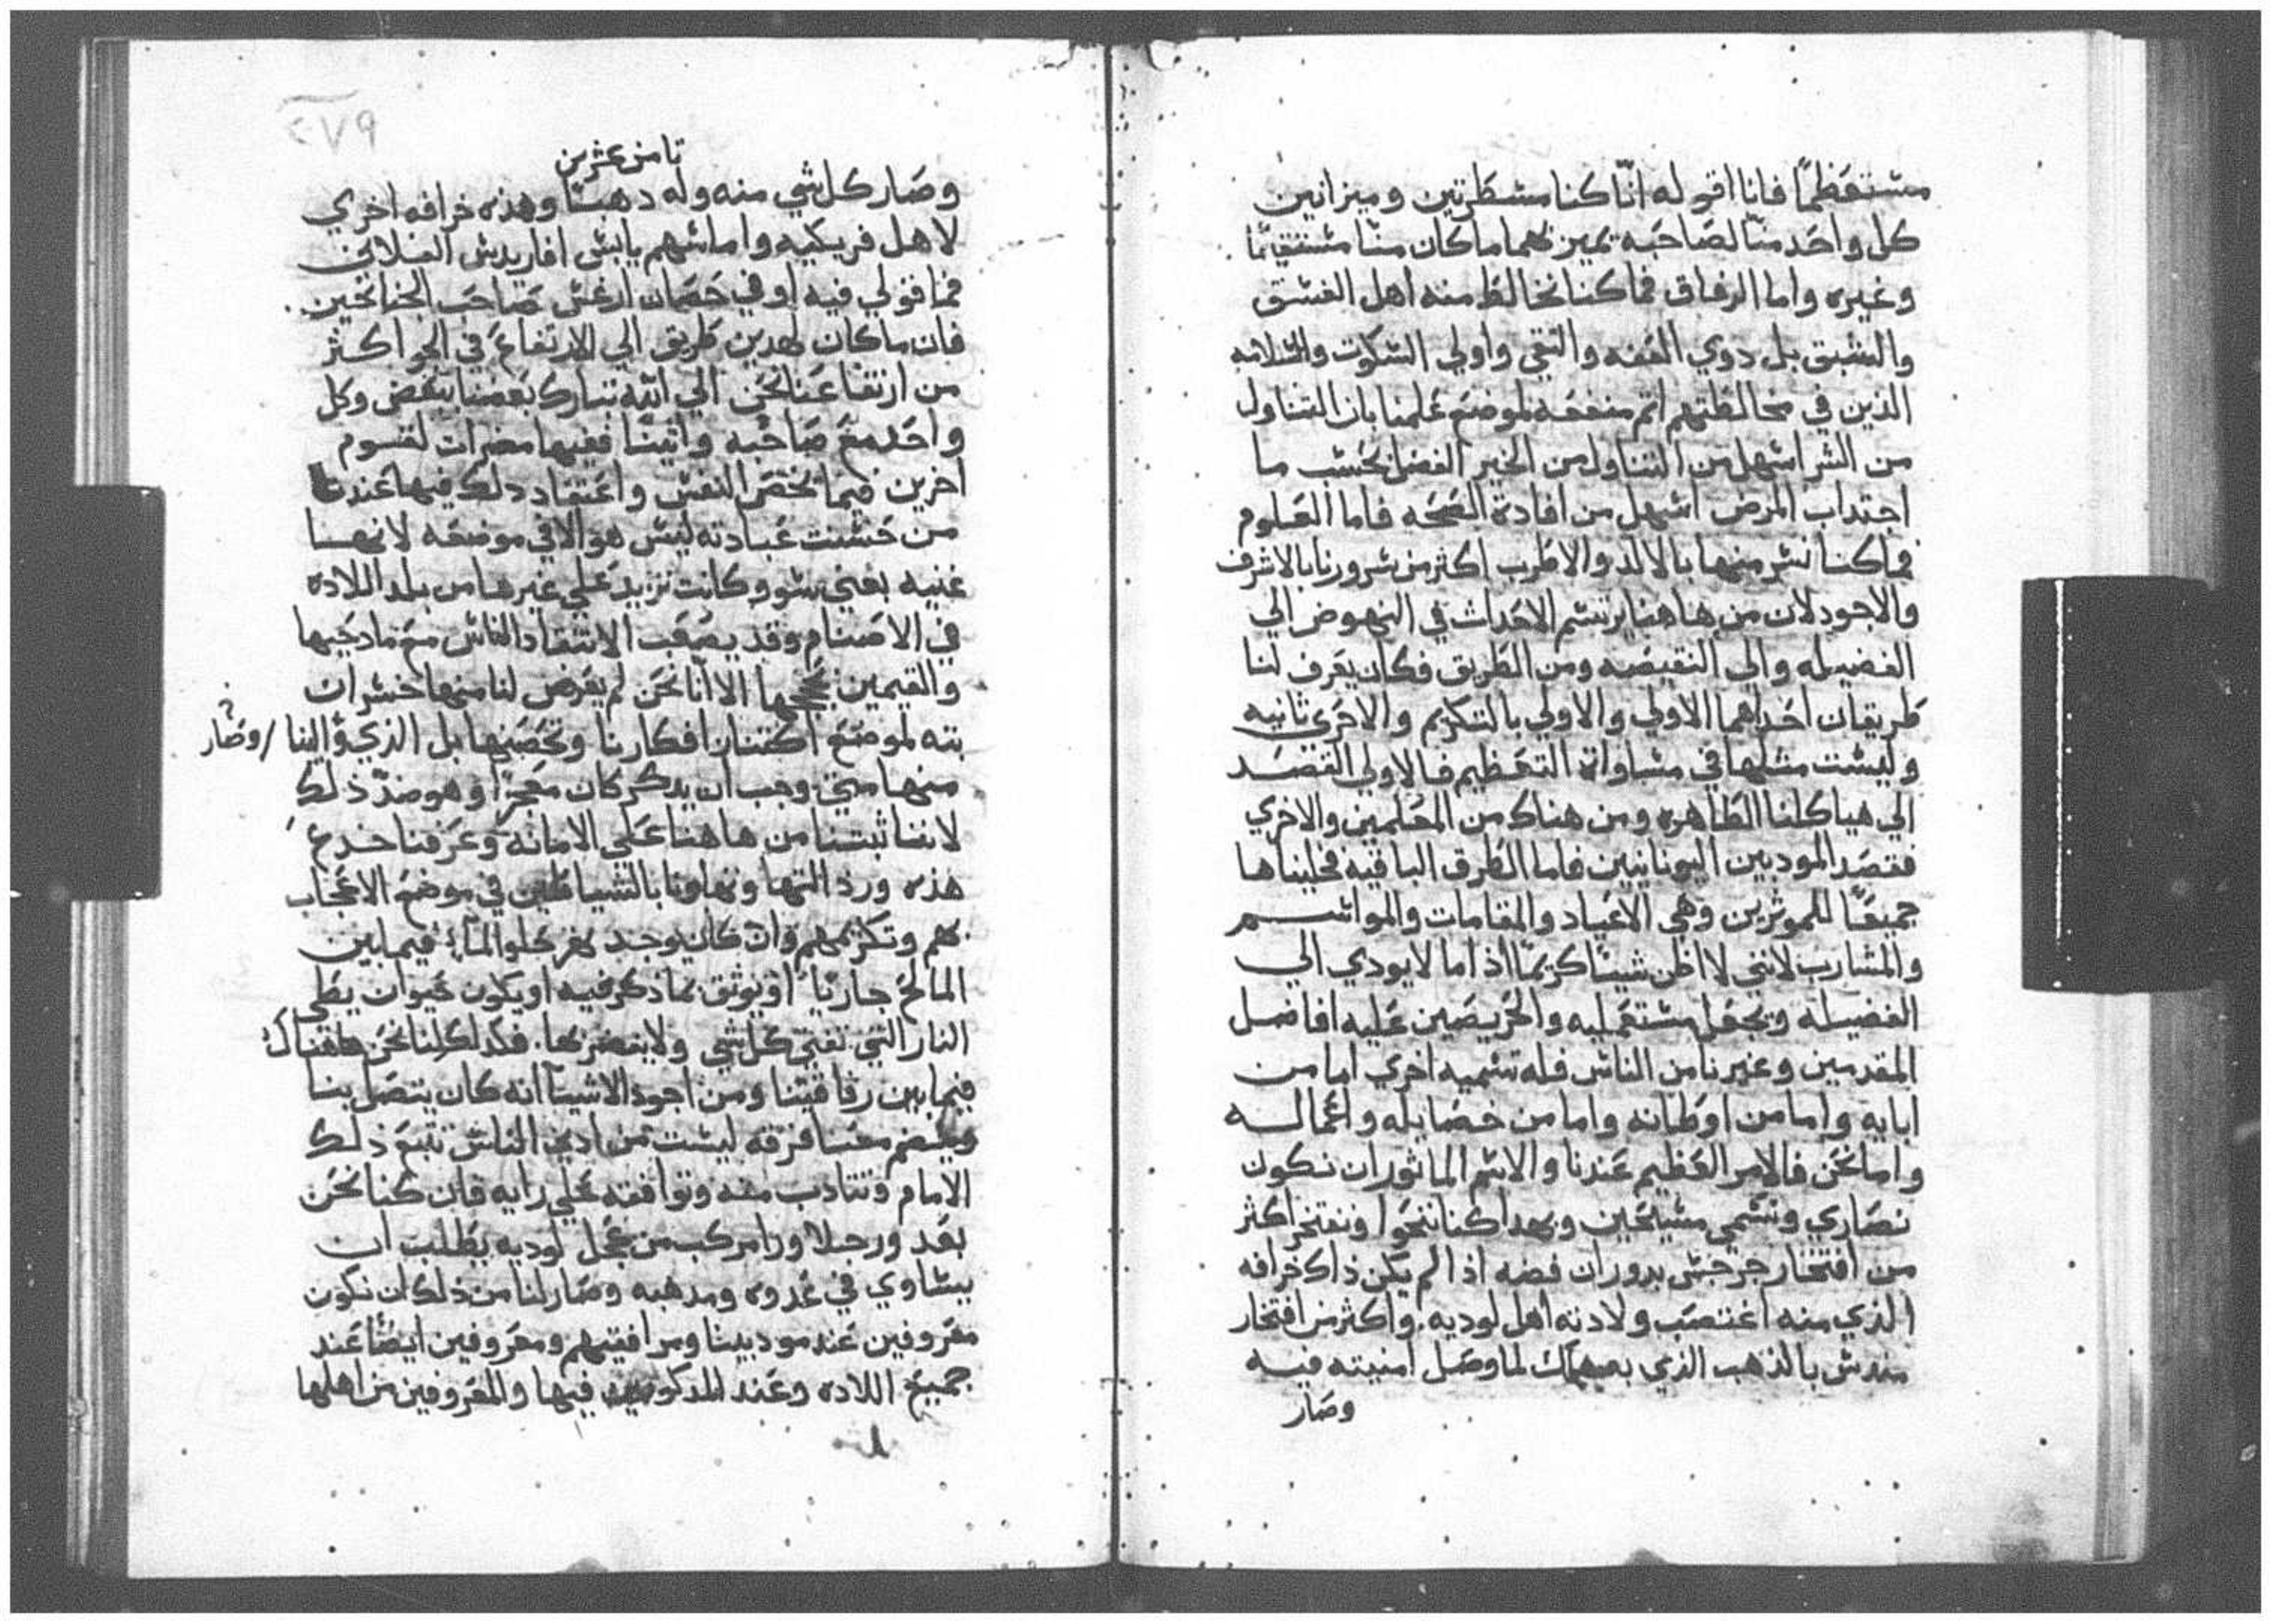 مستعظمًا فانا اقوله انّا كنا مسطرتين وميزانين
كل واحد منّا لصاحبه يميز بهما ما كان منّا مستقيمًا
وغيره واما الرفاق فما كنا نخالط منه اهل الفسق
والشبق بل دوي العفه والتقي واولي السكوت والسلامه
الذين في مخالطتهم اتم منفعه لموضع علمنا بان التناول
من الشر اسهل من التناول من الخير الفضل بحسب ما
اجتداب المرض اسهل من افادة الصحه فاما العلوم
فما كنا نسر منها بالالد والاطرب اكثر من سرورنا بالاشرف
والاجود لان من هاهنا يرتسم الاحداث في النهوض الي
الفضيله والي النقيصه ومن الطريق فكان يعرف لنا
طريقان احداهما الاولي والاولي بالتكريم والاخري ثانيه
وليست مثلها في مساواة التعظيم فالاولي القصد
الي هياكلنا الطاهره ومن هناك من المعلمين والاخري
فقصد المودبين اليونانيين فاما الطرق الباقيه فخليناها
جميعًا للموثرين وهي الاعياد والمقامات والمواسم
والمشارب لانني لا اظن شيئا كريمًا اذا ما لا يودي الي
الفضيله ويجعل مستعمليه والحريصين عليه افاضل
المقدمين وغيرنا من الناس فله تسميه اخري اما من
ابايه واما من اوطانه واما من خصايله واعماله
واما نحن فالامر العظيم عندنا والاسم الماثور ان نكون
نصاري ونسمي مسيحين وبهدا كنا ننخوا ونفتخر اكثر
من افتخار جرجس بدوران فضه اذا لم يكن ذاك خرافه
الذي منه اغتصب ولادته اهل لوديه. واكثر من افتخار
ميدس بالذهب الذي به هلك لما وصل امنيته فيه
وصار
٢٧٩
تامن عشرين
وصار كل شي منه وله دهبًا وهذه خرافه اخري
لاهل فريكيه واما سهم يابس افاريدس الفلاني
فما قولي فيه او في حصان ارغس صاحب الجناحين
فان ما كان لهدين طريق الي الارتفاع في الجو اكثر
من ارتفاعنا نحن الي الله تبارك بعضنا ببعض وكل
واحد مع صاحبه واتينا ففيها مضرات لقوم
اخرين فيما يخص النفس واعتقاد دلك فيها عندنا
من حسنت عبادته ليس هو الا في موضعه لانها
غنيه بغني سو وكانت تزيد علي غيرها من بلد اللاده
في الاصنام وقد يصعب الانتقاد الناس مع مادحيها
والقيمين بحججها الا انّا نحن لم يعرض لنا منها خسران
بته لموضع اكتنان افكارنا وتحصنها بل الذي والينا / وصار
منها متي وجب ان يدكر كان معجزًا وهو ضدّ ذلك
لاننا ثبتنا من هاهنا علي الامانه وعرفنا خدع
هذه وردالتها وتهاونا بالشياطين في موضع الاعجاب
بهم وتكريمهم وان كان يوجد نهر حلوا لماء فيما بين
المالح جاريًا او يوثق بما دكر فيه او يكون حيوان يطي
النار التي تفني كل شي ولا ينضر بها. فكدلك كنا نحن هاهناك
فيما بين رفاقيتنا ومن اجود الاشيا انه كان يتصل بنا
وينضم معنا فرقه ليست من ادني الناس تتبع ذلك
الامام وتتادب منه وتوافقه علي رايه فان كنا نحن
بعد ورجلا ورا مركب من عجل لوديه يطلب ان
يساوي في عدوه ومدهبه وصار لنا من ذلك ان نكون
معروفين عند مودبينا ومرافقيهم ومعروفين ايضًا عند
جميع اللاده وعند المدكورين فيها والمعروفين من اهلها